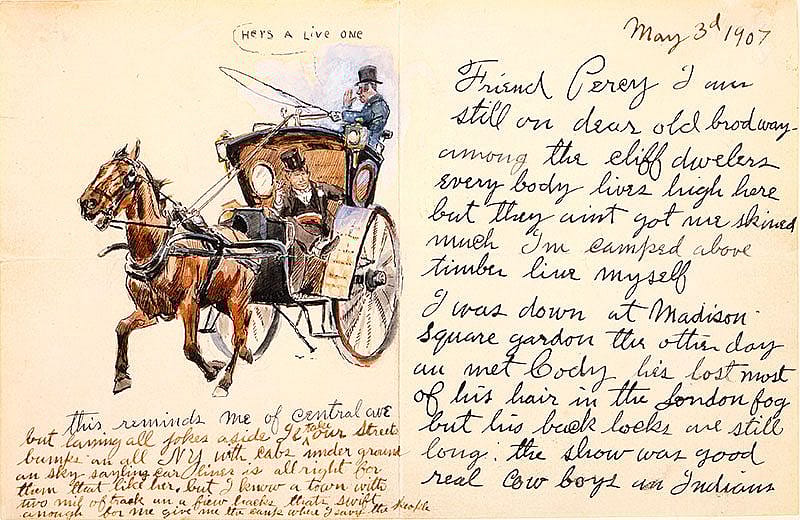 HeRS A LIVE ONE
this reminds me of central ave
but laying all jokes aside Il take our streets
bumps an all NY with cabs under ground
an sky sayling car lines is all right for
them that like her, but I know a town with
two mil of track an a fiew hacks thats swift
anough for me give me the camp where I savy the people
May 3d 1907
Friend Percy I am
still on dear old brodway
among the cliff dwelers
every body lives high here
but they aint got me skined
much I'm camped above
timber line myself
I was down at Madison
Square gardon the other day
an met Cody hes lost most
of his hair in the London fog
but his back locks are still
long. the show was good
real cow boys an Indians